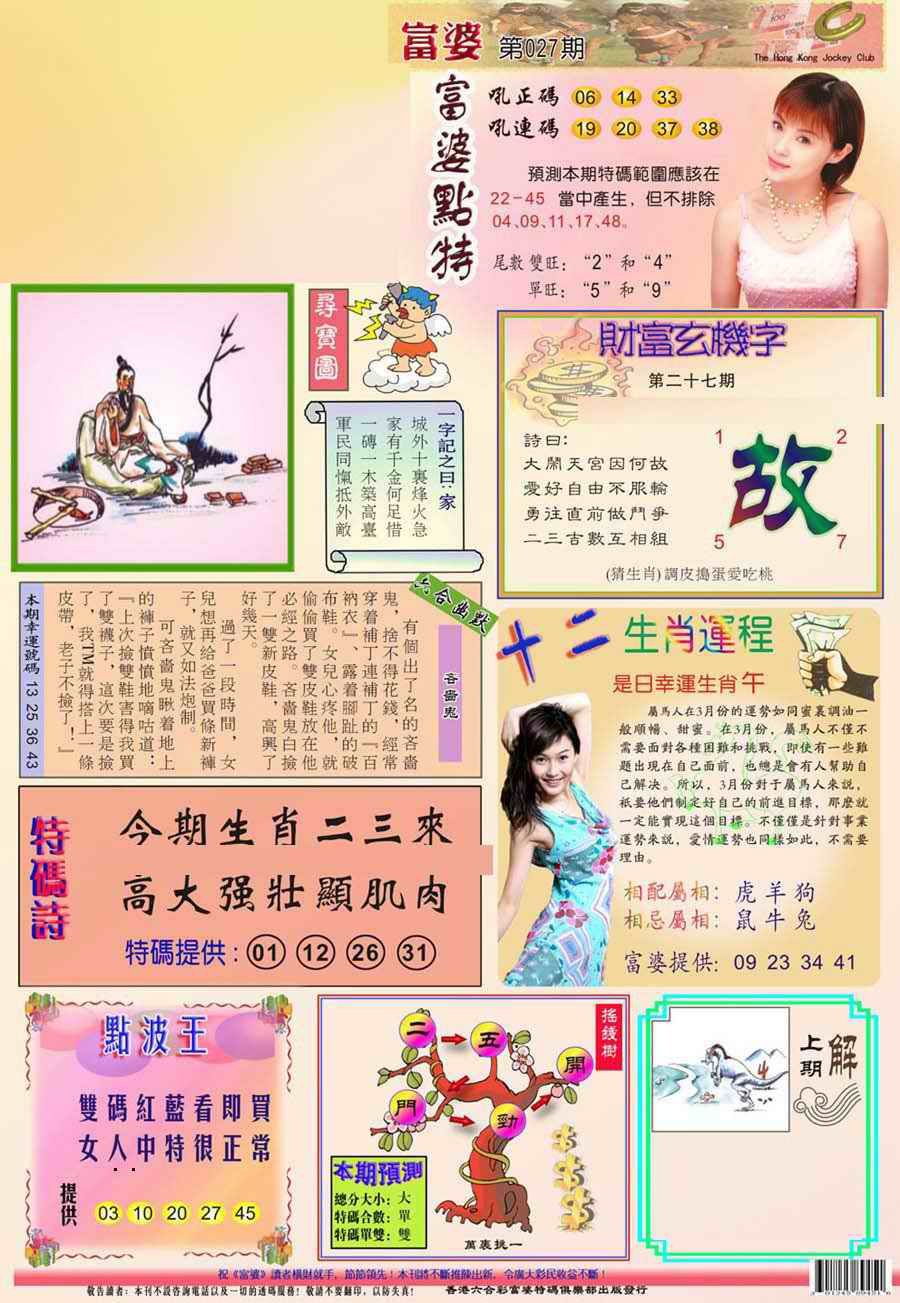 富婆 第027期
The Hong Kong Jockey Club
富婆點特
吼正碼 06 14 33
吼連碼 19 20 37 38
預測本期特碼範圍應該在
22-45 當中產生, 但不排除
04、09、11、17、48。
尾數雙旺: “2” 和 “4”
單旺: “5” 和 “9”
尋寶圖
一字記之曰:家
城外十裏烽火急
家有千金何足惜
一磚一木築高臺
軍民同愾抵外敵
財富玄機字
第二十七期
詩曰:
大鬧天宮因何故
愛好自由不服輸
勇往直前做鬥爭
二三吉數互相組
1 2
故
5 7
(猜生肖) 調皮搗蛋愛吃桃
六合幽默
吝嗇鬼
有個出了名的吝嗇
鬼,捨不得花錢,經常
穿着補丁連補丁的『百
衲衣』、露着腳趾的破
布鞋。女兒心疼他,就
偷偷買了雙皮鞋放在他
必經之路。吝嗇鬼白撿
了一雙新皮鞋,高興了
好幾天。
過了一段時間,女
兒想再給爸爸買條新褲
子,就又如法炮制。
可吝嗇鬼瞅着地上
的褲子憤憤地嘀咕道:
『上次撿雙鞋害得我買
了雙襪子,這次要是撿
了,我TM就得搭上一條
皮帶,老子不撿了!』
本期幸運號碼 13 25 36 43
十二生肖運程
是日幸運生肖午
屬馬人在3月份的運勢如同蜜裏調油一
般順暢、甜蜜。在3月份,屬馬人不僅不
需要面對各種困難和挑戰,即使有一些難
題出現在自己面前,也總是會有人幫助自
己解决。所以,3月份對于屬馬人來說,
衹要他們制定好自己的前進目標,那麽就
一定能實現這個目標。不僅僅是針對事業
運勢來說,愛情運勢也同樣如此,不需要
理由。
相配屬相: 虎羊狗
相忌屬相: 鼠牛兔
富婆提供: 09 23 34 41
特碼詩
今期生肖二三來
高大强壯顯肌肉
特碼提供: 01 12 26 31
點波王
雙碼紅藍看即買
女人中特很正常
提供 03 10 20 27 45
搖錢樹
二 五
開
門
勁
本期預測
總分大小: 大
特碼合數: 單
特碼單雙: 雙
萬裏挑一
上期解
祝《富婆》讀者橫財就手, 節節領先! 本刊將不斷推陳出新, 令廣大彩民收益不斷!
敬告讀者: 本刊不設咨詢電話以及一切的透碼服務! 敬請不要翻印, 以防失真!
香港六合彩富婆特碼俱樂部出版發行